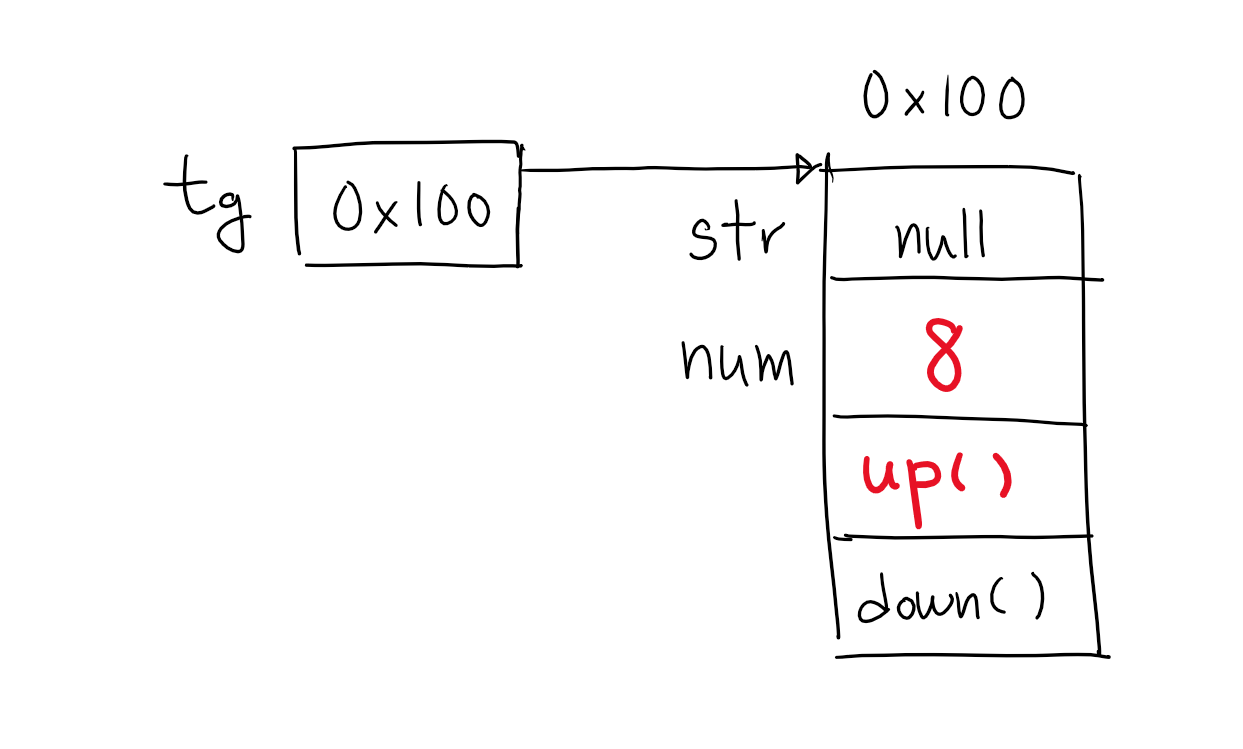 0x100
tg 0x100
str null
num 8
up()
down()